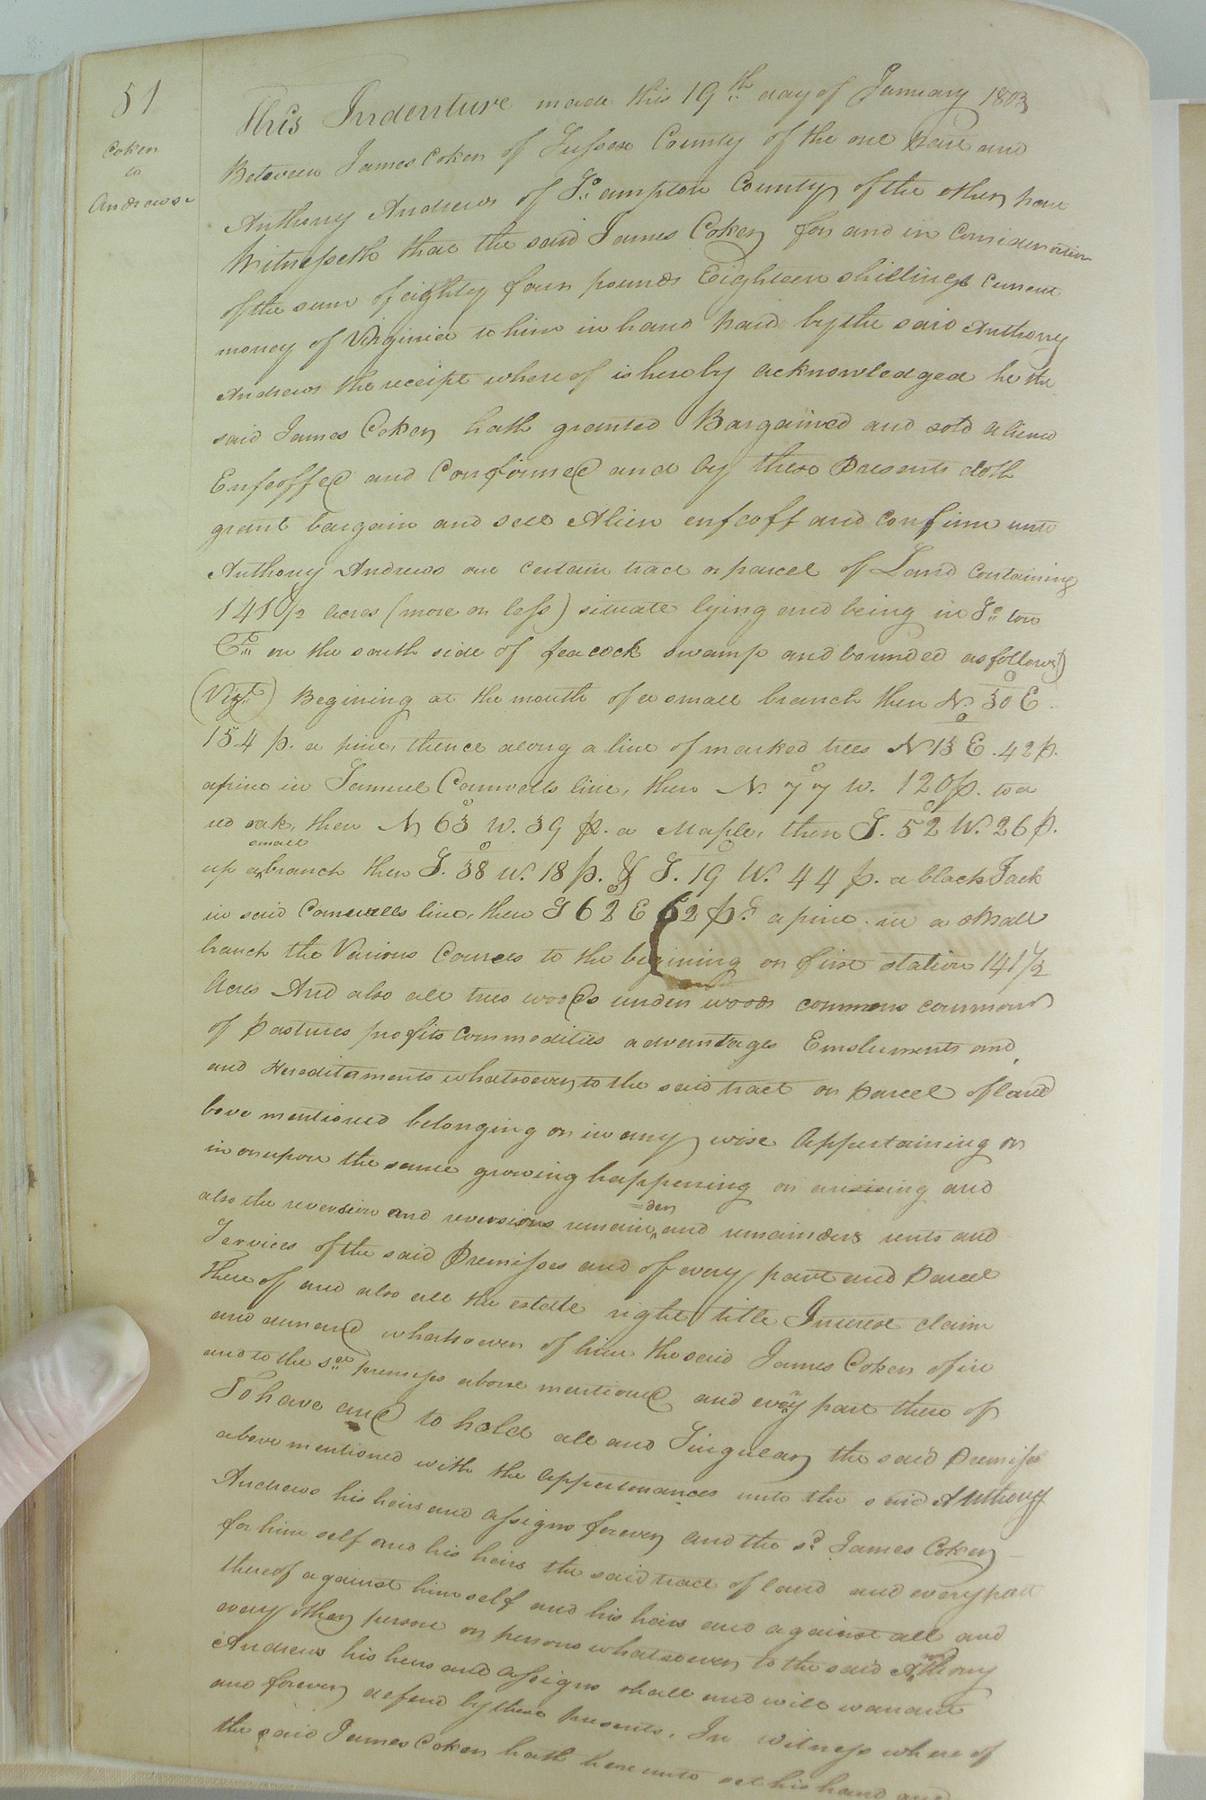 51
Coker
to
Andrews
This Indenture made this 19th day of January 1803
Between James Coker of Sussex County of the one part and
Anthony Andrews of So. ampton County of the other part
Witnesseth that the said James Coker for and in Consideration
of the sum of eighty four pounds Eighteen shillings Current
money of Virginia to him in hand paid by the said Anthony
Andrews the receipt where of is hereby acknowledged he the
said James Coker hath granted Bargained and sold aliend
Enfeoffed and Confirmed and by these Presents doth
grant bargain and sell Alien enfeoff and confirm unto
Anthony Andrews one certain tract or parcel of Land Containing
141 1/2 acres (more or less) situate lying and being in So. ton
Cty on the south side of seacock swamp and bounded as follows)
(Vizt) Begining at the mouth of a small branch then N. 30° E.
154 p. a pine, thence along a line of marked trees N 13° E. 42 p.
a pine in Samuel Cornwells line, then N. 77° W. 120 p. to a
red oak, then N 63° W. 39 p. a Maple, then S. 52° W. 26 p.
up a small branch then S. 38° W. 18 p. & S. 19° W. 44 p. a black Jack
in said Cornwells line, then S 62° E 62 ps. a pine in a small
branch the Various Courses to the begining or first station 141 1/2
Acres And also all trees woods under woods commons common
of Pastures profits Commodities advantages Emoluments and
and Hereditaments whatsoever to the said tract or parcel of land
bove mentioned belonging or in any wise Appertaining or
in or upon the same growing happening or arising and
also the reversion and reversions remain=der and remainders rents and
Services of the said Premisses and of every part and Parcel
there off and also all the estate right title Interest claim
and demand whatsoever of him the said James Coker of in
and to the sd. premises above mentioned and every part there of
To have and to hold all and Singular the said Premises
above mentioned with the appertenances unto the said Anthony
Andrews his heirs and assigns forever and the sd. James Coker
for him self and his heirs the said tract of land and every part
thereof against him self and his heirs and against all and
every other person or persons whatsoever to the said Anthony
Andrews his heirs and assigns shall and will warrant
and forever defend by these presents. In witness where of
the said James Coker hath here unto set his hand and